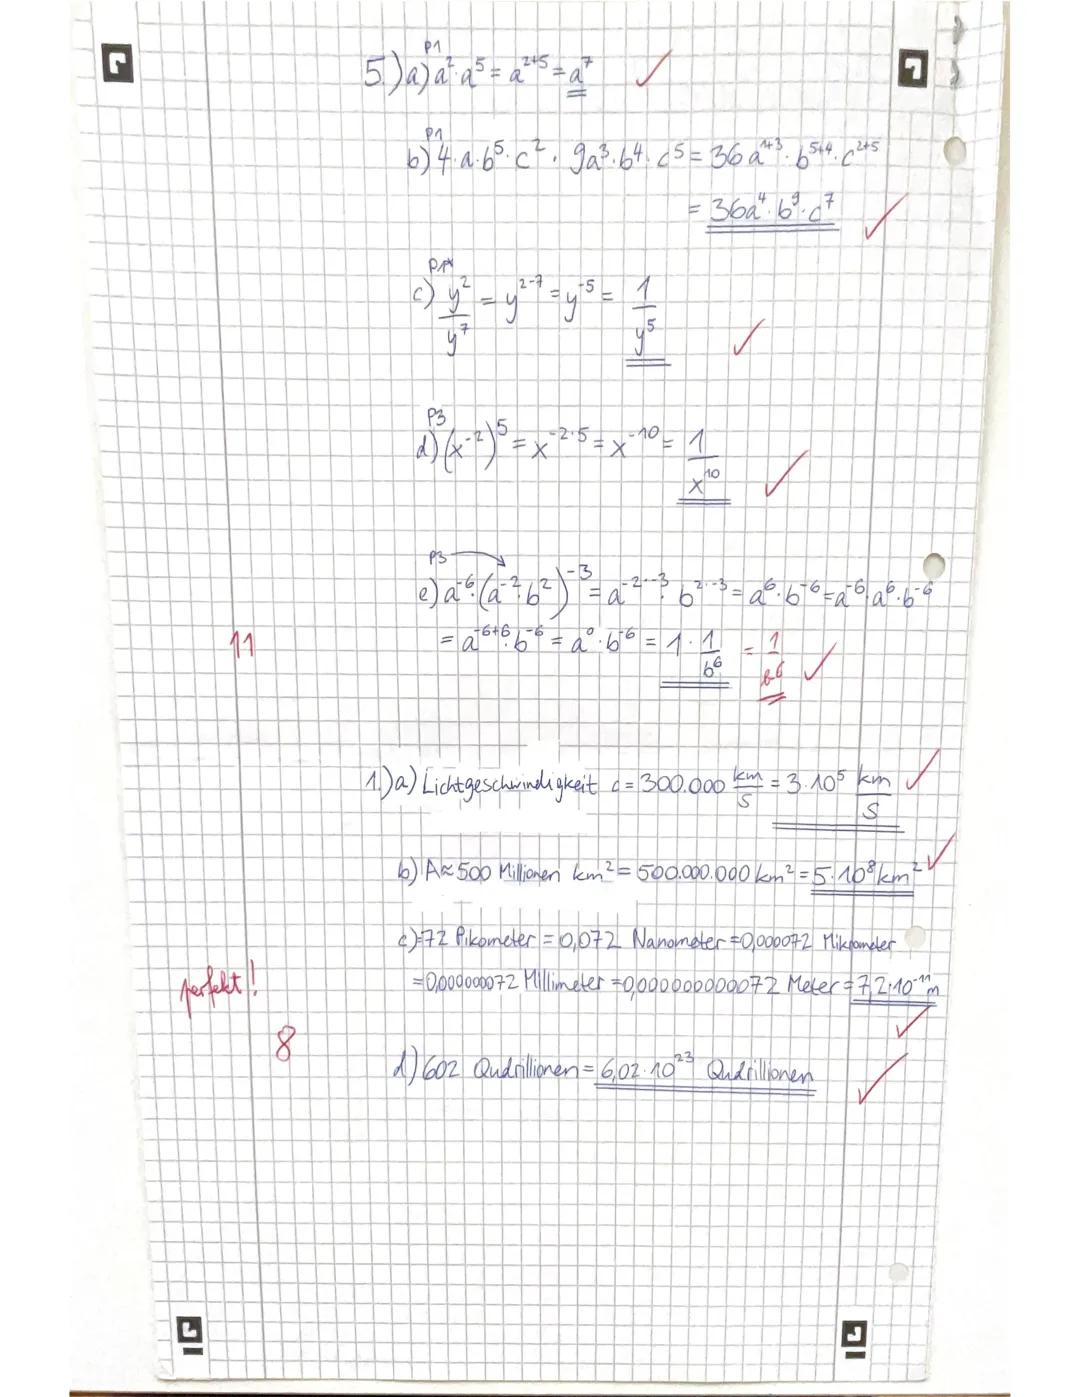 P1
5.) a) a²·a⁵ = a²⁺⁵ = a⁷ ✓
P1
b) 4·a·b⁵·c² · 9a³·b⁴·c⁵ = 36a¹⁺³·b⁵⁺⁴·c²⁺⁵
= 36a⁴·b⁹·c⁷ ✓
c) y²/y⁷ = y²⁻⁷ = y⁻⁵ = 1/y⁵ ✓
P3
d) (x⁻²)⁵ = x⁻²·⁵ = x⁻¹⁰ = 1/x¹⁰ ✓
P3
e) a⁻⁶·(a⁻²·b²)⁻³ = a⁻²·⁻³·b²·⁻³ = a⁶·b⁻⁶ = a⁻⁶·a⁶·b⁻⁶
11 = a⁻⁶⁺⁶·b⁻⁶ = a⁰·b⁻⁶ = 1·1/b⁶ = 1/b⁶ ✓
1.) a) Lichtgeschwindigkeit c = 300.000 km/s = 3·10⁵ km/s ✓
b) A ≈ 500 Millionen km² = 500.000.000 km² = 5·10⁸ km² ✓
c) 72 Pikometer = 0,072 Nanometer = 0,000072 Mikrometer
perfekt! = 0,000000072 Millimeter = 0,000000000072 Meter = 7,2·10⁻¹¹ m ✓
8
d) 602 Qudrillionen = 6,02·10²³ Qudrillionen ✓